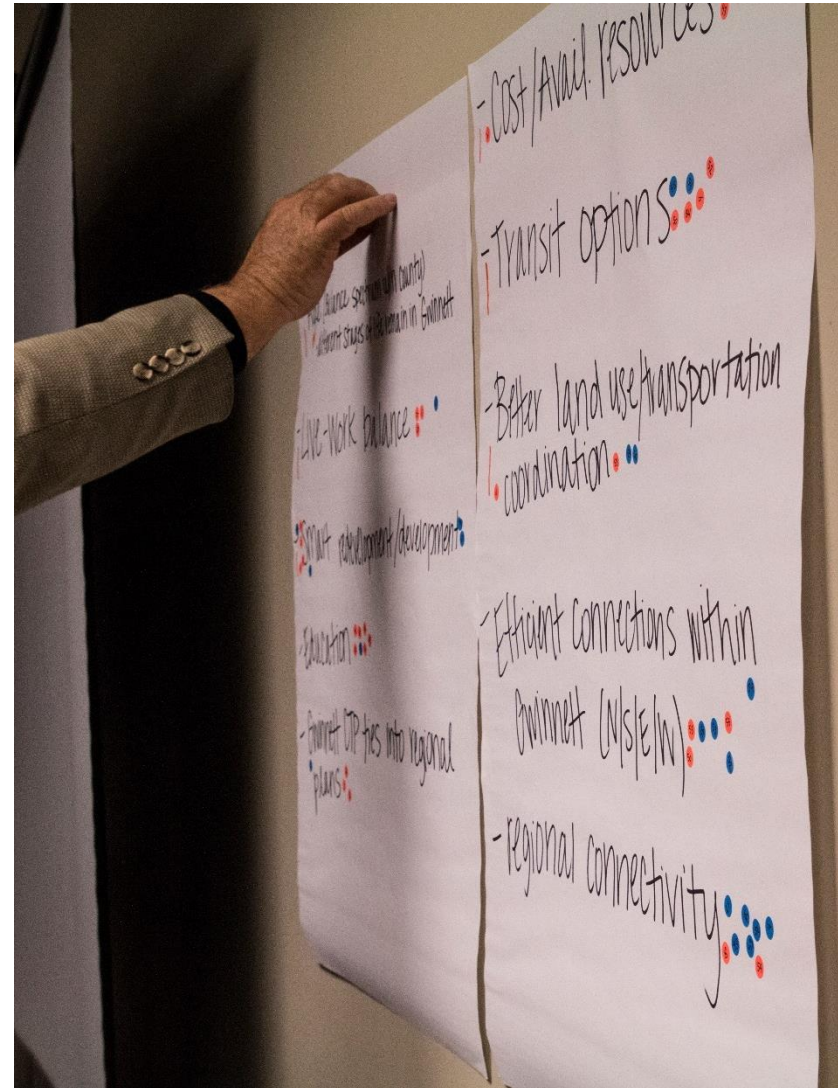 (balance spectrum w/in county)
different stages of life remain in Gwinnett
-Live-Work balance
-Smart redevelopment/development
-Education
-Gwinnett CTP ties into regional
plans
-Cost/Avail. resources
-Transit options
-Better land use/transportation
coordination
-Efficient connections within
Gwinnett (N/S/E/W)
-regional connectivity